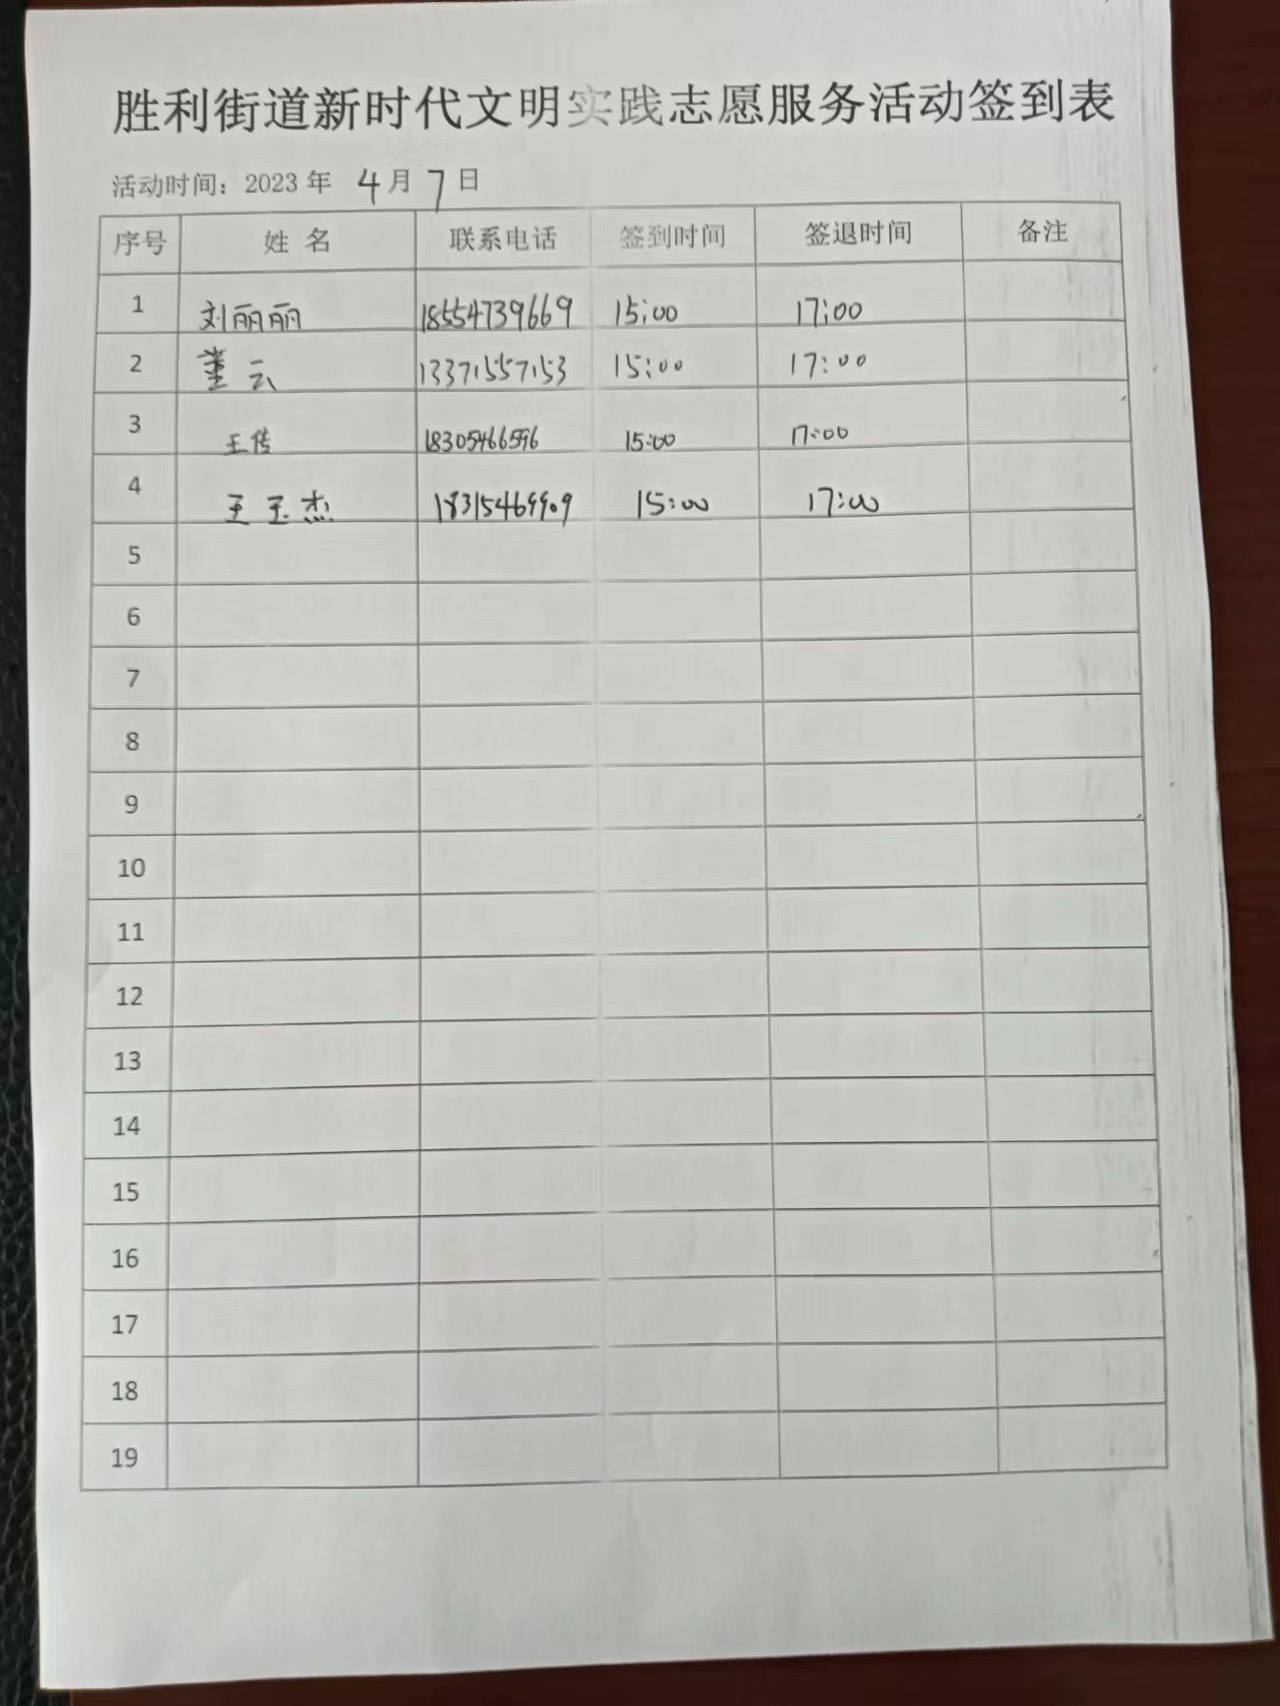 胜利街道新时代文明实践志愿服务活动签到表
活动时间：2023 年 4 月 7 日
序号 姓 名 联系电话 签到时间 签退时间 备注
1 刘丽丽 18554739669 15:00 17:00
2 董云 13371557153 15:00 17:00
3 王传 18305466596 15:00 17:00
4 王玉杰 18315469909 15:00 17:00
5
6
7
8
9
10
11
12
13
14
15
16
17
18
19